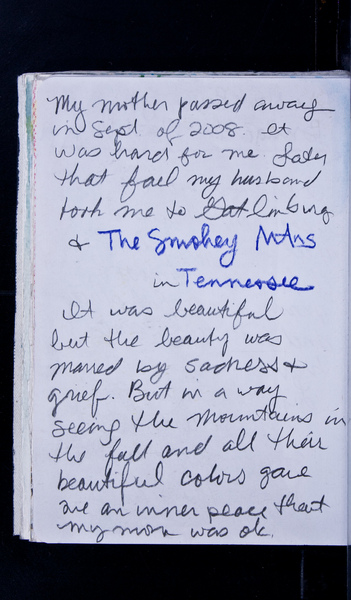 My mother passed away
in Sept. of 2008. It
was hard for me. Later
that fall my husband
took me to Gatlinburg
& The Smokey Mtns
in Tennessee
It was beautiful
but the beauty was
marred by sadness &
grief. But in a way
seeing the mountains in
the fall and all their
beautiful colors gave
me an inner peace that
my mom was ok.